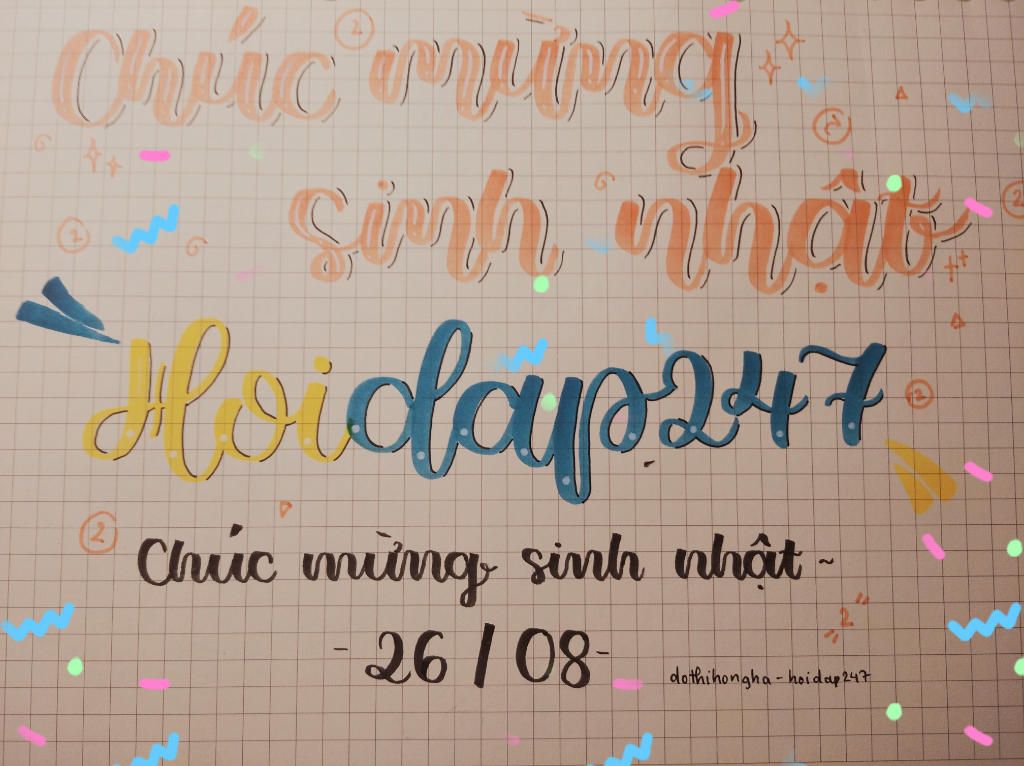 Chúc mừng
sinh nhật
Hoidap247
Chúc mừng sinh nhật ~
- 26 / 08 -
dothihongha - hoidap247